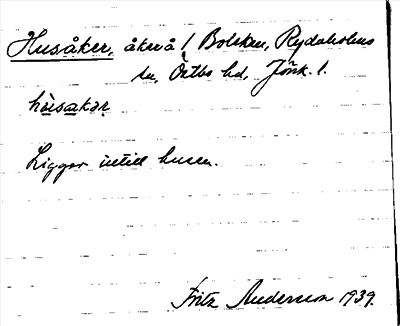 Husåker, åker å Bolsken, Rydaholms
sn, Östbo hd, Jönk. l.
hùsakər
Ligger intill husen.
Fritz Andersson 1939.